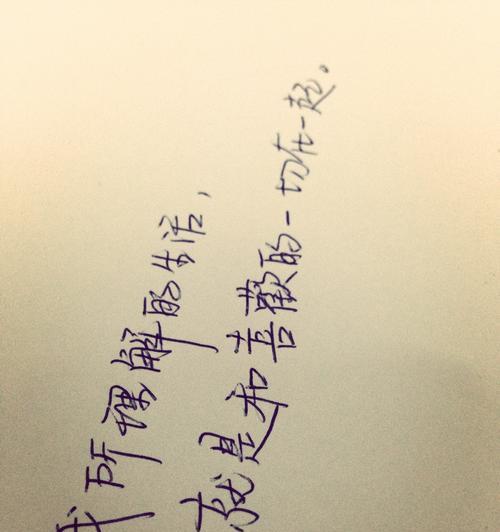 我所理解的生活，
就是和喜歡的一切在一起。